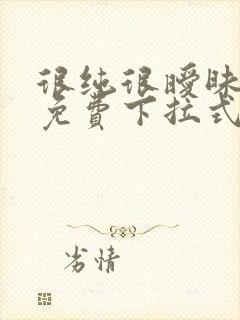 很纯很暧昧
免费下拉式
劣情